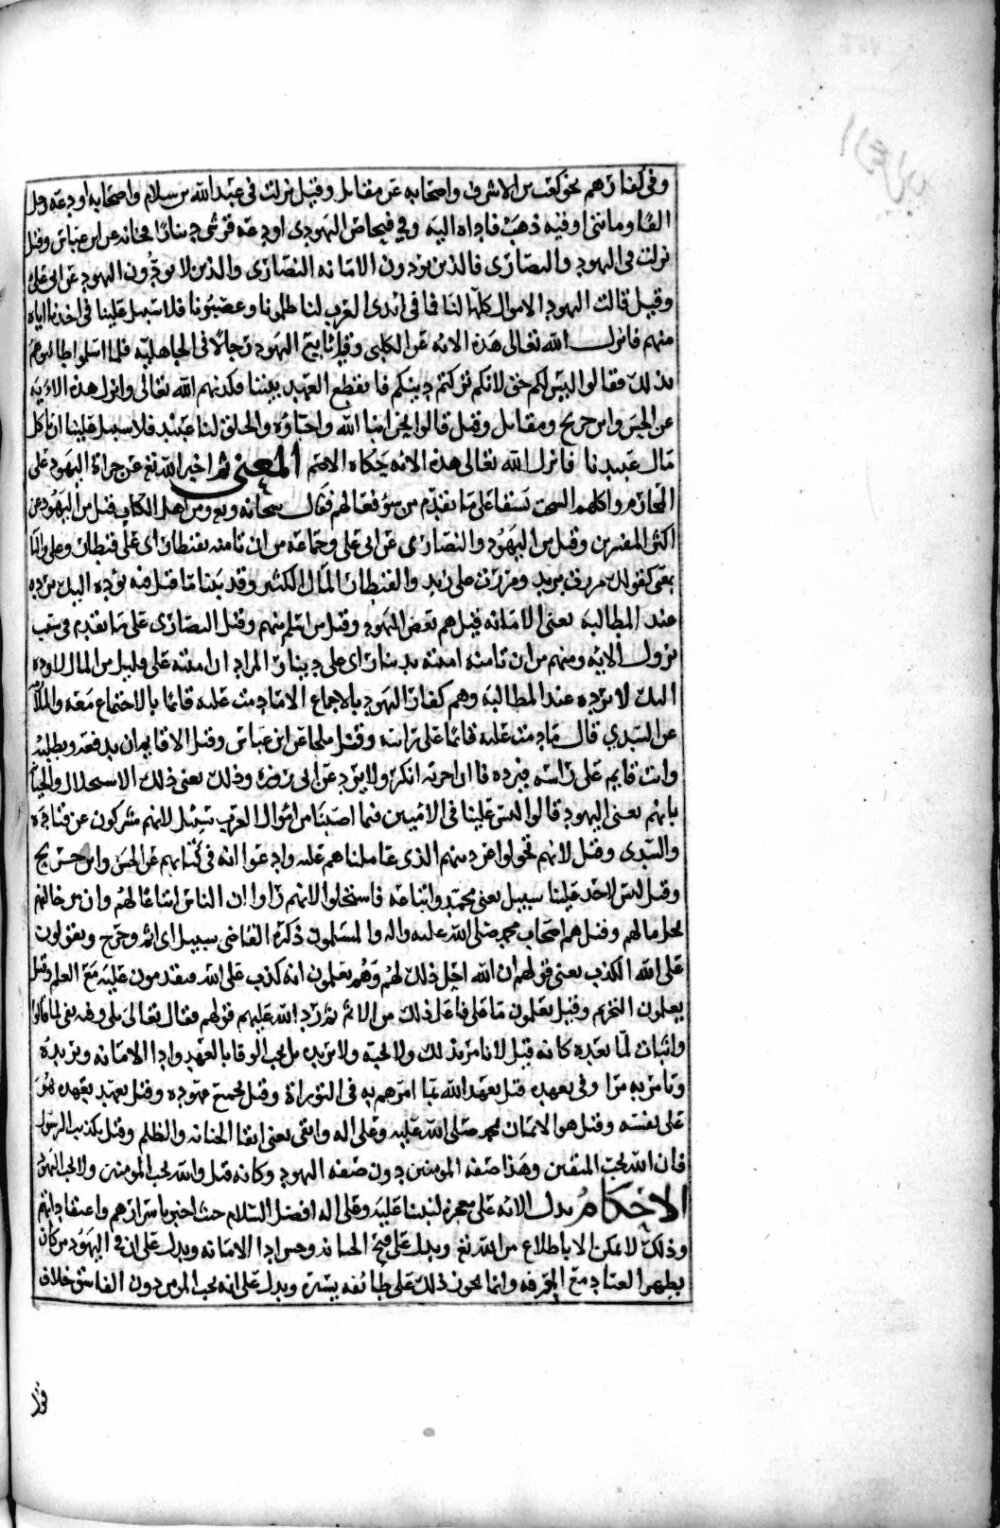 وفي كفارهم نحو كعب بن الاشرف واصحابه عن مقاتل وقيل نزلت في عبد الله بن سلام واصحابه اودعه رجل
الفا ومائتي اوقيه ذهب فاداه اليه وفي فنحاص اليهودي اودعه قرشي دينارا فخانه عن ابن عباس وقيل
نزلت في اليهود والنصارى فالذين يؤدون الامانه النصارى والذين لا يؤدون اليهود عن ابي علي
وقيل قالت اليهود الاموال كلها لنا فما في ايدي العرب لنا ظلمونا وغصبونا فلا سبيل علينا في اخذنا اياه
منهم فانزل الله تعالى هذه الايه عن الكلبي وقيل بايع اليهود رجالا في الجاهليه فلما اسلموا طالبوهم
بذلك فقالوا ليس لكم حق لانكم تركتم دينكم فانقطع العهد بيننا فكذبهم الله تعالى وانزل هذه الايه
عن الحسن وابن جريج ومقاتل وقيل قالوا نحن ابنا الله واحباؤه والخلق لنا عبيد فلا سبيل علينا ان اكل
مال عبيدنا فانزل الله تعالى هذه الايه حكاه الاصم المعنى ثم اخبر الله تع عن جراة اليهود على
المحارم واكلهم السحت نسقا على ما تقدم من سؤ فعالهم فقال سبحانه ومن اهل الكتاب قيل من اليهود عن
اكثر المفسرين وقيل من اليهود والنصارى عن ابي علي وجماعه من ان تامنه بقنطار اي على قنطار وعلى والبا
بمعنى كقولك مررت بزيد ومررت على زيد والقنطار المال الكثير وقد بينا ما قيل فيه يؤده اليك يرده
عند المطالبه يعني الامانه قيل هم بعض اليهود وقيل من اسلم منهم وقيل النصارى على ما تقدم في سبب
نزول الايه ومنهم من ان تامنه امنته بدينار اي على دينار المراد ان امنته على قليل من المال لا يؤده
اليك لا يرده عند المطالبه وهم كفار اليهود بالاجماع الا ما دمت عليه قائما بالاجتماع معه والملازمه
عن السدي قال ما دمت عليه قائما على راسه وقيل ملحا عن ابن عباس وقيل الا قايم ان يدفعه ويطلبه
وانت قايم على راسه فيرده فاا ان اخرته انكر ولا يرد عن ابي روق وذلك يعني ذلك الاستحلال والخيانه
بانهم يعني اليهود قالوا ليس علينا في الاميين فيما اصبنا من اموال العرب سبيل لانهم مشركون عن قتاده
والسدي وقيل لانهم تحولوا عن دينهم الذي عاملناهم عليه وادعوا انه في كتابهم عن الحسن وابن جريج
وقيل ليس لاحد علينا سبيل يعني محمد واتباعه فاستحلوا لانهم راوا ان الناس اتباعا لهم وان من خالفهم
يحل مالهم وقيل هم اصحاب محمد صلى الله عليه واله والمسلمون ذكره القاضي سبيل اي اثم وحرج ويقولون
على الله الكذب يعني قولهم ان الله احل ذلك لهم وهم يعلمون انه كذب على الله فيقدمون عليه مع العلم وقيل
يعلمون التحريم وقيل يعلمون ما على فاعل ذلك من الاثم ثم رد الله عليهم قولهم فقال تعالى بلى وفيه نفي لما قالوا
واثبات لما بعده كانه قيل لا نامر بذلك ولا نحبه ولا نريده بل نحب الوفا بالعهد وادا الامانه ونريده
ونامر به من اوفى بعهده قيل بعهد الله بما امرهم به في التوراة وقيل بجميع عهوده وقيل بعهد يعهده هو
على نفسه وقيل هو الايمان بمحمد صلى الله عليه وعلى اله واتقى يعني اتقا الخيانه والظلم وقيل بكذب الرسول
فان الله يحب المتقين وهذا صفه المومنين دون صفه اليهود وكانه قيل والله يحب المومنين ولا يحب اليهود
الاحكام يدل الايه على معجزه لنبينا عليه وعلى اله افضل السلام حيث اخبر باسرارهم واعتقاداتهم
وذلك لا يمكن الا باطلاع من الله تع ويدل على قبح الخيانه وحسن ادا الامانه ويدل على ان في اليهود من كان
يظهر العناد مع المعرفه وانما يجوز ذلك على طائفه يسيره ويدل على انه يحب المومن دون الفاسق خلاف